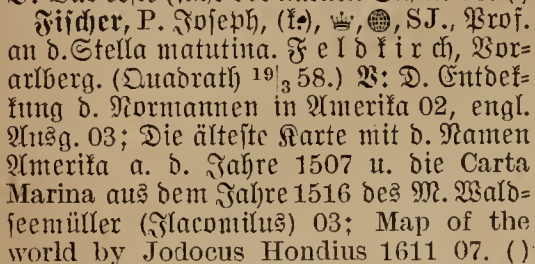 Fischer, P. Joseph, (k•), SJ., Prof.
an d. Stella matutina. Feldkirch, Vor=
arlberg. (Quadrath 19|3 58.) V: D. Entdek=
kung d. Normannen in Amerika 02, engl.
Ausg. 03; Die älteste Karte mit d. Namen
Amerika a. d. Jahre 1507 u. die Carta
Marina aus dem Jahre 1516 des M. Wald=
seemüller (Ilacomilus) 03; Map of the
world by Jodocus Hondius 1611 07. ()